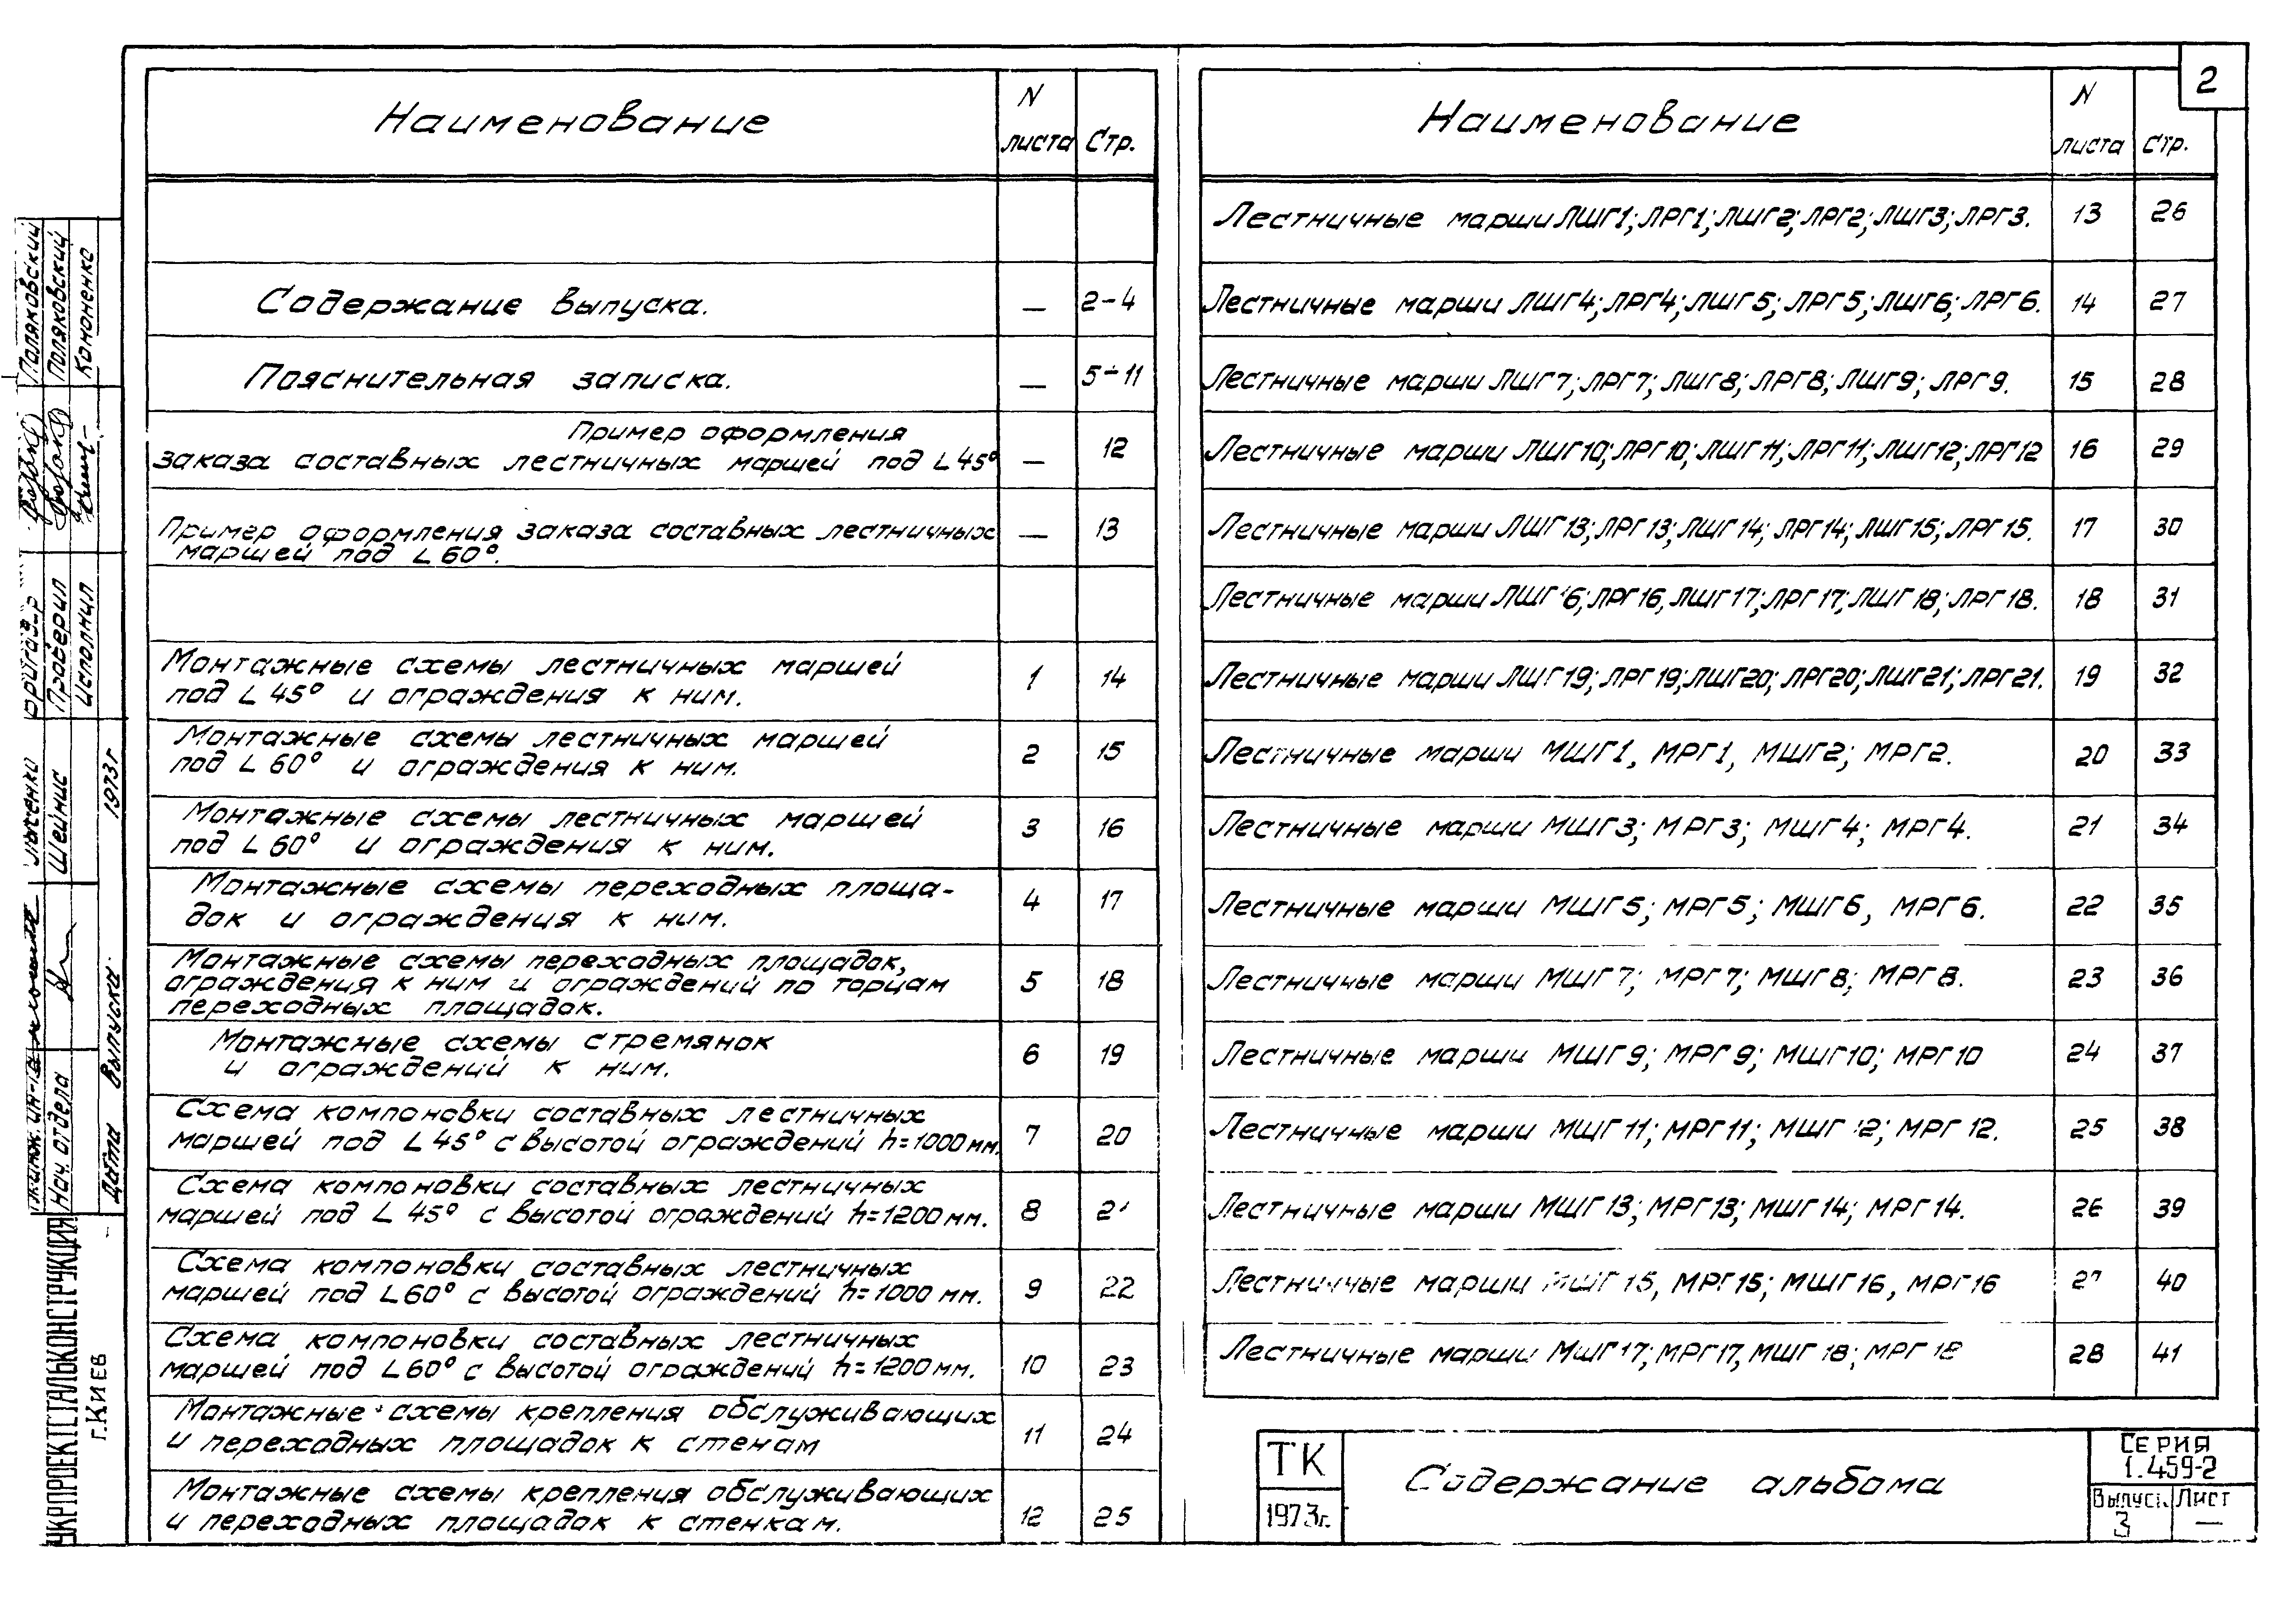 2
Наименование N листа Стр.
Содержание выпуска. — 2-4
Пояснительная записка. — 5÷11
Пример оформления
заказа составных лестничных маршей под L 45° — 12
Пример оформления заказа составных лестничных — 13
маршей под L 60°.
Монтажные схемы лестничных маршей
под L 45° и ограждения к ним. 1 14
Монтажные схемы лестничных маршей
под L 60° и ограждения к ним. 2 15
Монтажные схемы лестничных маршей
под L 60° и ограждения к ним. 3 16
Монтажные схемы переходных площа-
док и ограждения к ним. 4 17
Монтажные схемы переходных площадок,
ограждения к ним и ограждений по торцам 5 18
переходных площадок.
Монтажные схемы стремянок
и ограждений к ним. 6 19
Схема компоновки составных лестничных
маршей под L 45° с высотой ограждений h=1000 мм. 7 20
Схема компоновки составных лестничных
маршей под L 45° с высотой ограждений h=1200 мм. 8 21
Схема компоновки составных лестничных
маршей под L 60° с высотой ограждений h=1000 мм. 9 22
Схема компоновки составных лестничных
маршей под L 60° с высотой ограждений h=1200 мм. 10 23
Монтажные схемы крепления обслуживающих
и переходных площадок к стенам 11 24
Монтажные схемы крепления обслуживающих
и переходных площадок к стенкам. 12 25
Наименование N листа Стр.
Лестничные марши ЛШГ1; ЛРГ1; ЛШГ2; ЛРГ2; ЛШГ3; ЛРГ3. 13 26
Лестничные марши ЛШГ4; ЛРГ4; ЛШГ5; ЛРГ5; ЛШГ6; ЛРГ6. 14 27
Лестничные марши ЛШГ7; ЛРГ7; ЛШГ8; ЛРГ8; ЛШГ9; ЛРГ9. 15 28
Лестничные марши ЛШГ10; ЛРГ10; ЛШГ11; ЛРГ11; ЛШГ12; ЛРГ12 16 29
Лестничные марши ЛШГ13; ЛРГ13; ЛШГ14; ЛРГ14; ЛШГ15; ЛРГ15. 17 30
Лестничные марши ЛШГ16; ЛРГ16, ЛШГ17; ЛРГ17; ЛШГ18; ЛРГ18. 18 31
Лестничные марши ЛШГ19; ЛРГ19; ЛШГ20; ЛРГ20; ЛШГ21; ЛРГ21. 19 32
Лестничные марши МШГ1, МРГ1, МШГ2; МРГ2. 20 33
Лестничные марши МШГ3; МРГ3; МШГ4; МРГ4. 21 34
Лестничные марши МШГ5; МРГ5; МШГ6, МРГ6. 22 35
Лестничные марши МШГ7; МРГ7; МШГ8; МРГ8. 23 36
Лестничные марши МШГ9; МРГ9; МШГ10; МРГ10 24 37
Лестничные марши МШГ11; МРГ11; МШГ12; МРГ12. 25 38
Лестничные марши МШГ13; МРГ13; МШГ14; МРГ14. 26 39
Лестничные марши МШГ15, МРГ15; МШГ16, МРГ16 27 40
Лестничные марши МШГ17; МРГ17, МШГ18; МРГ18 28 41
ТК
1973г.
Содержание альбома
Серия
1.459-2
Выпуск Лист
3 —
УКРПРОЕКТСТАЛЬКОНСТРУКЦИЯ
г. Киев
Лысенко
Бригадир
Поляковский
Нач. отдела
Шейнис
Проверил
Поляковский
Исполнил
Кононенко
Дата выпуска
1973г